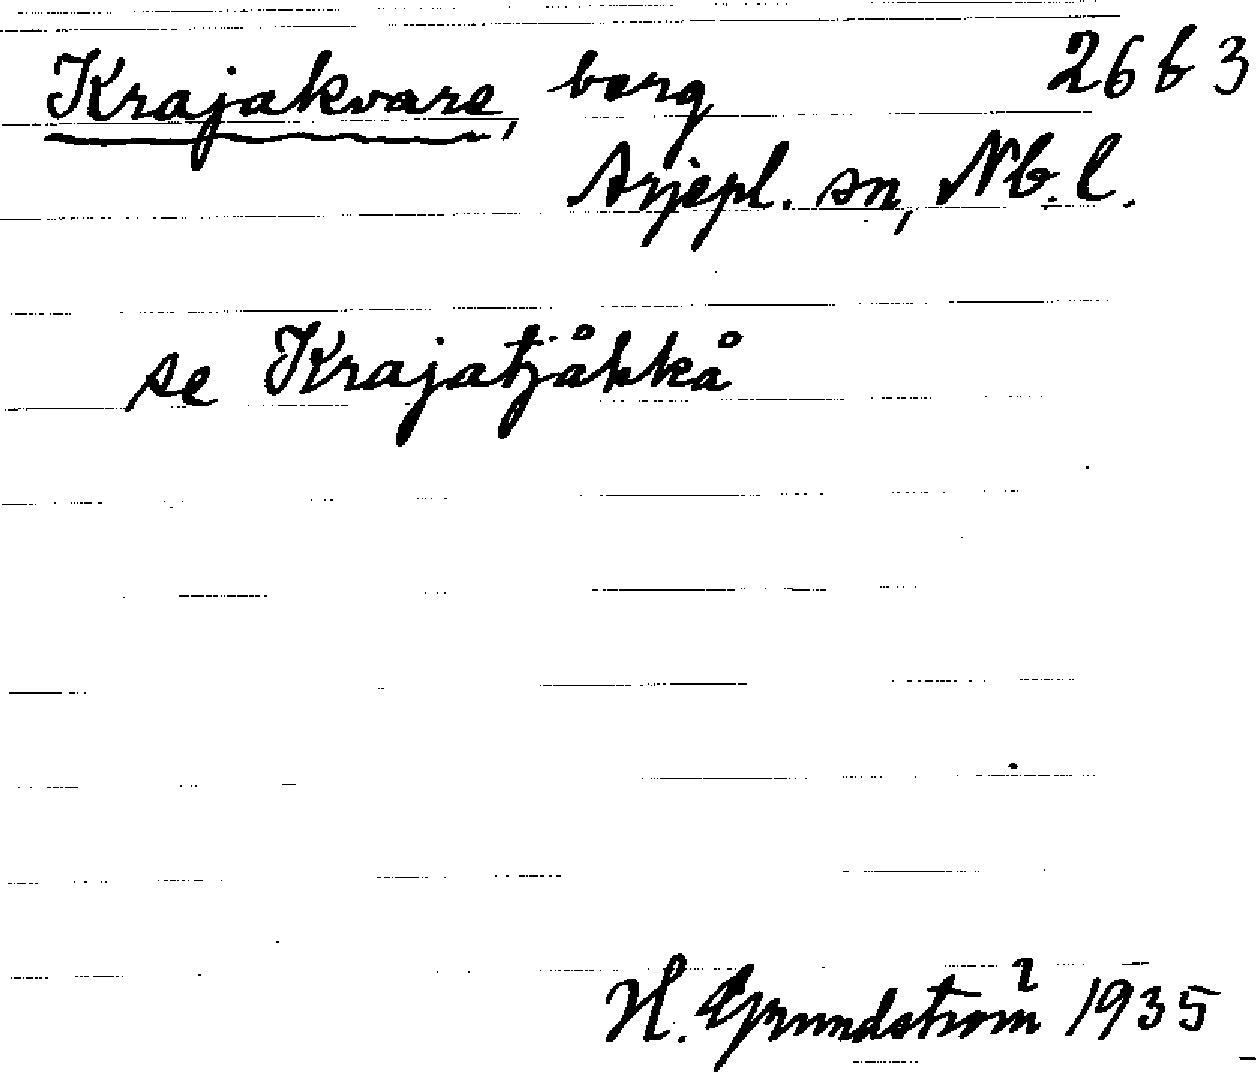 Krajakvare, berg 26 b 3
Arjepl. sn, Nb. l.
se Krajatjåkkå
H. Grundström 1935